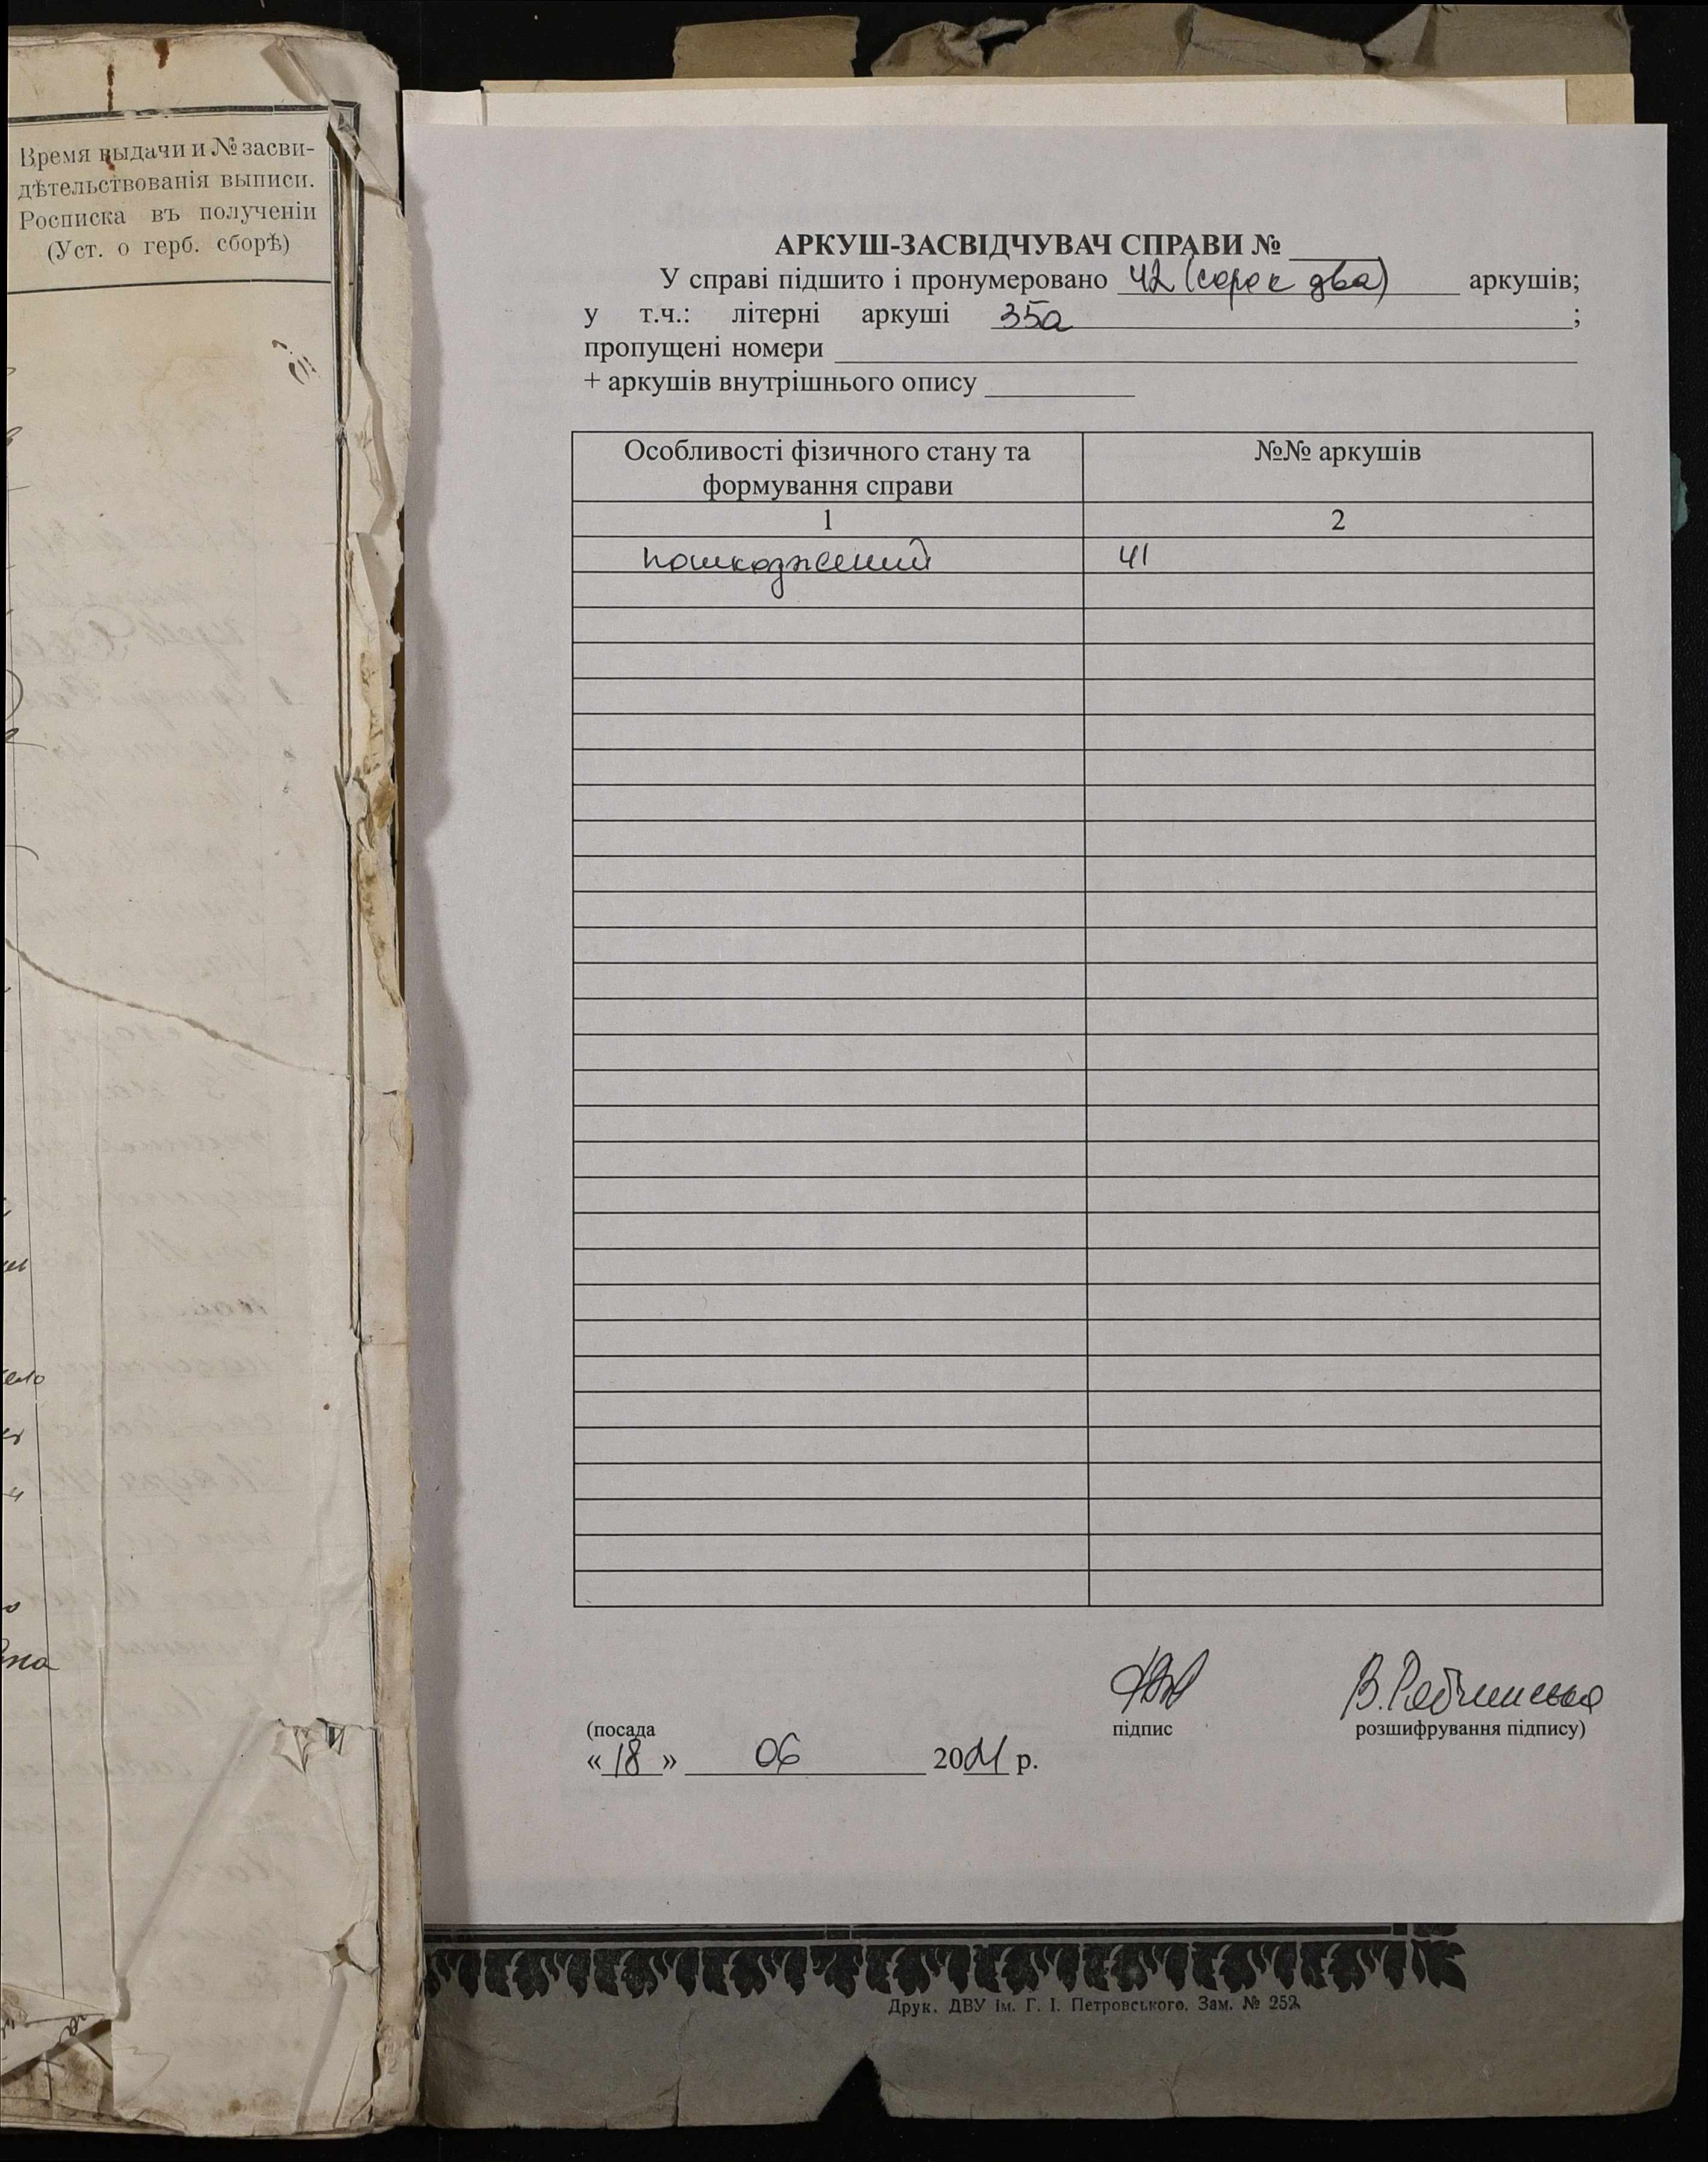 Время выдачи и № засви-
дѣтельствованія выписи.
Росписка въ полученіи
(Уст. о герб. сборѣ)
АРКУШ-ЗАСВІДЧУВАЧ СПРАВИ № ______
У справі підшито і пронумеровано 42 (сорок два) аркушів;
у т.ч.: літерні аркуші 35а ;
пропущені номери ______
+ аркушів внутрішнього опису ______
Особливості фізичного стану та №№ аркушів
формування справи
1 2
пошкоджений 41
(посада підпис розшифрування підпису)
« 18 » 06 2021 р.
Друк. ДВУ ім. Г. І. Петровського. Зам. № 252